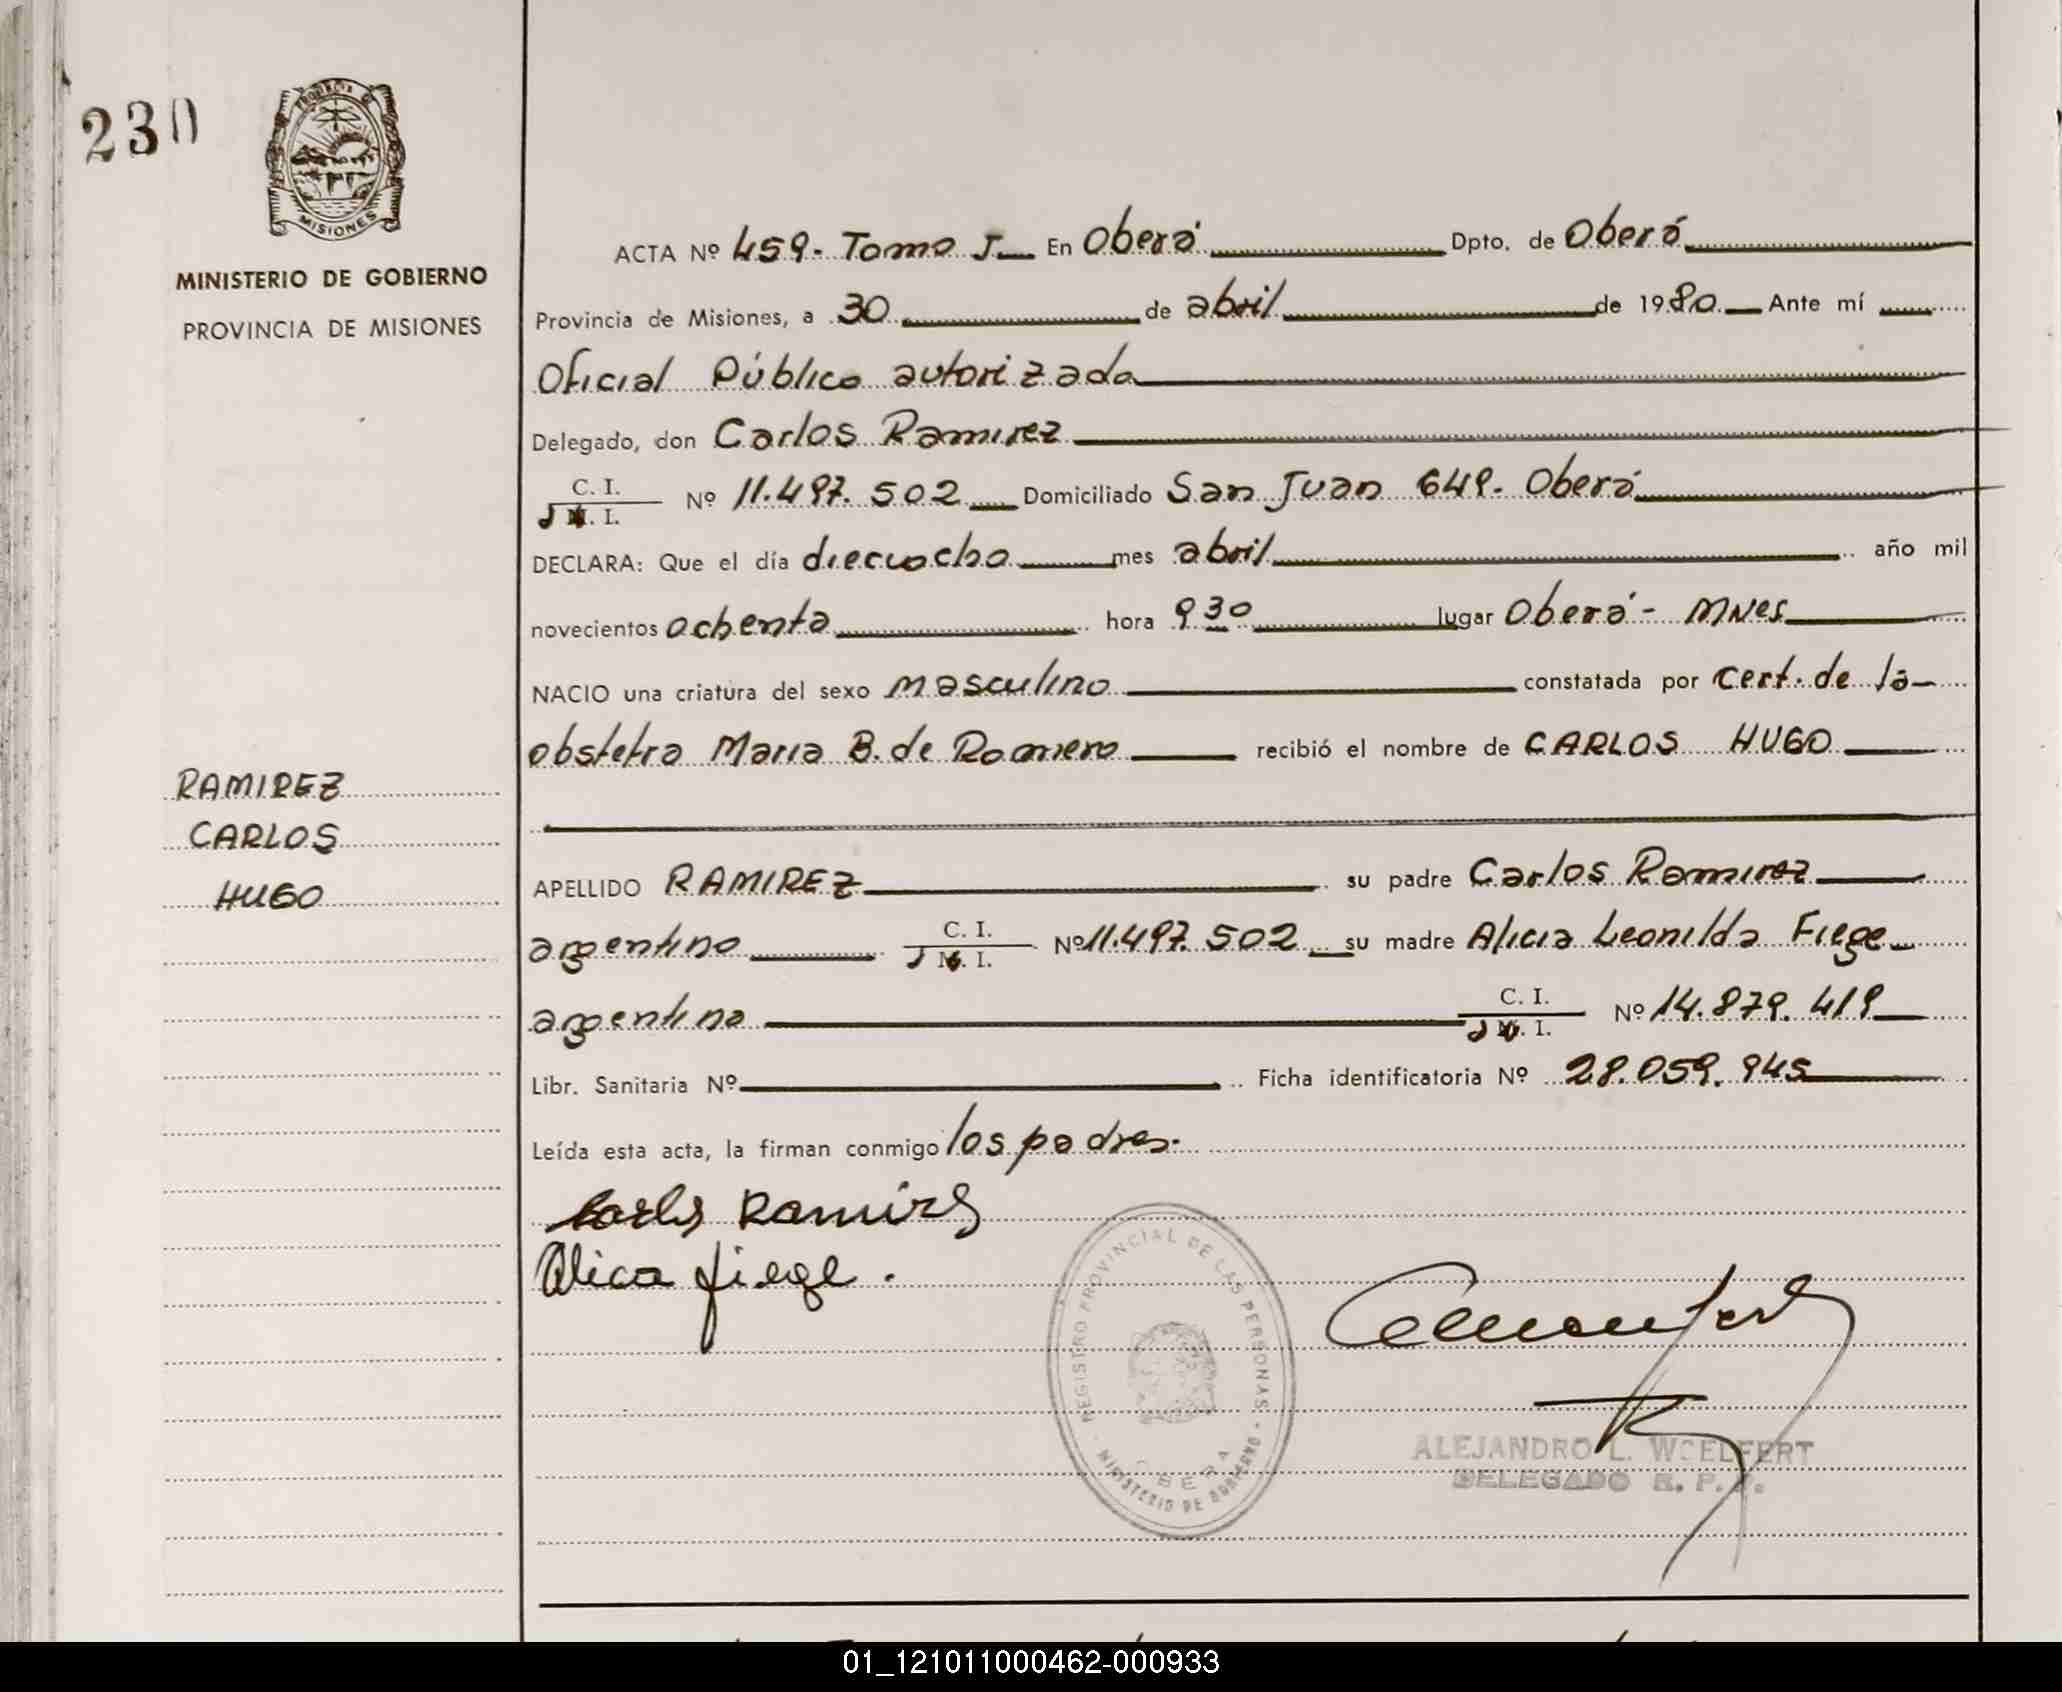 230
PROVINCIA DE
MISIONES
MINISTERIO DE GOBIERNO
PROVINCIA DE MISIONES
RAMIREZ
CARLOS
HUGO
ACTA Nº 459- Tomo I En Oberá Dpto. de Oberá
Provincia de Misiones, a 30 de abril de 1980 Ante mí
Oficial Público autorizado
Delegado, don Carlos Ramirez
C. I.
M. I. Nº 11.497.502 Domiciliado San Juan 649- Oberá
DECLARA: Que el día dieciocho mes abril año mil
novecientos ochenta hora 9 30 lugar Oberá - MNes
NACIO una criatura del sexo masculino constatada por cert. de la
obstetra Maria B. de Romero recibió el nombre de CARLOS HUGO
APELLIDO RAMIREZ su padre Carlos Ramirez
argentino C. I.
M. I. Nº 11.497.502 su madre Alicia Leonilda Fiege
argentina C. I.
M. I. Nº 14.879.419
Libr. Sanitaria Nº Ficha identificatoria Nº 28.059.945
Leída esta acta, la firman conmigo los padres.
Carlos Ramirez
Alica fiege.
REGISTRO PROVINCIAL DE LAS PERSONAS
OBERA
MINISTERIO DE GOBIERNO
ALEJANDRO L. WOELFERT
DELEGADO R. P. P.
01_121011000462-000933